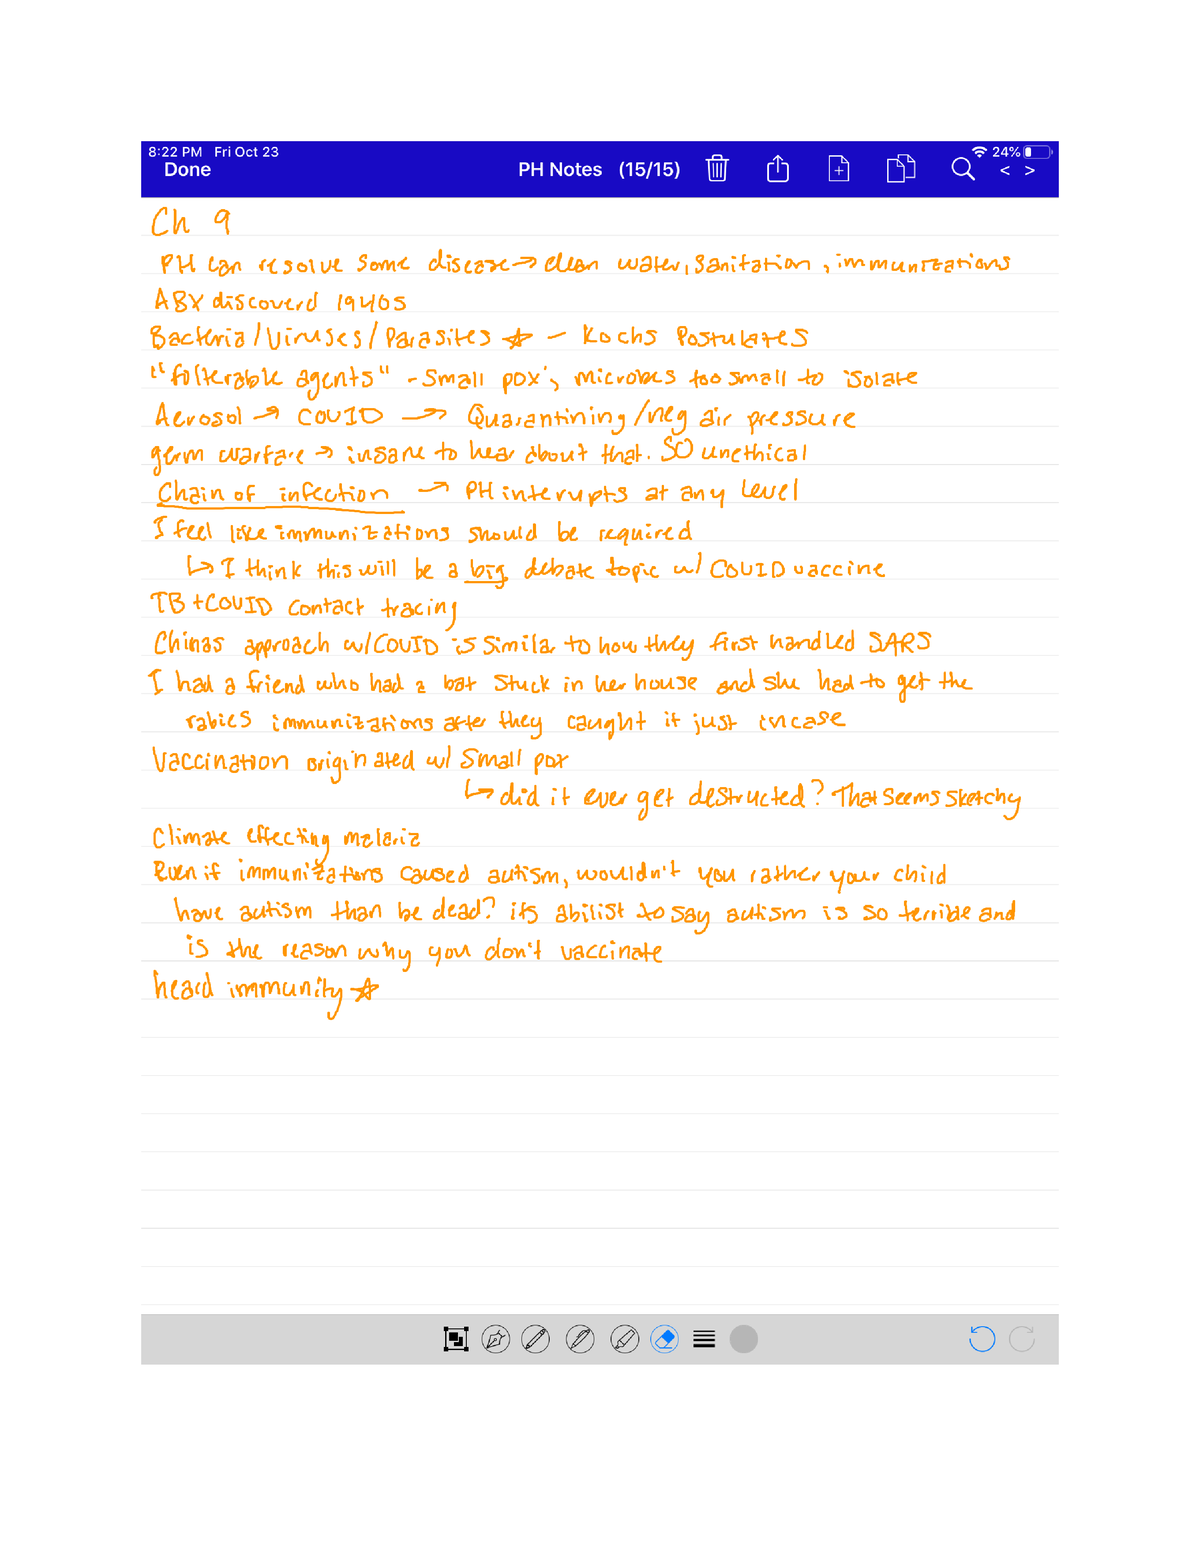 8:22 PM Fri Oct 23
24%
Done
PH Notes (15/15)
< >
Ch 9
PH can resolve some disease → clean water, sanitation, immunizations
ABX discoverd 1940s
Bacteria/Viruses/Parasites ☆ - Kochs Postulates
"folterable agents" - Small pox', microbes too small to isolate
Aerosol → COVID → Quarantining/neg air pressure
germ warfare → insane to hear about that. SO unethical
Chain of infection → PH interupts at any level
I feel like immunizations should be required
↳ I think this will be a big debate topic w/ COVID vaccine
TB + COVID contact tracing
Chinas approach w/ COVID is similar to how they first handled SARS
I had a friend who had a bat stuck in her house and she had to get the
rabies immunizations after they caught it just incase
Vaccination originated w/ Small pox
↳ did it ever get destructed? That seems sketchy
Climate effecting malaria
Even if immunizations caused autism, wouldn't you rather your child
have autism than be dead? its abilist to say autism is so terrible and
is the reason why you don't vaccinate
heard immunity ☆